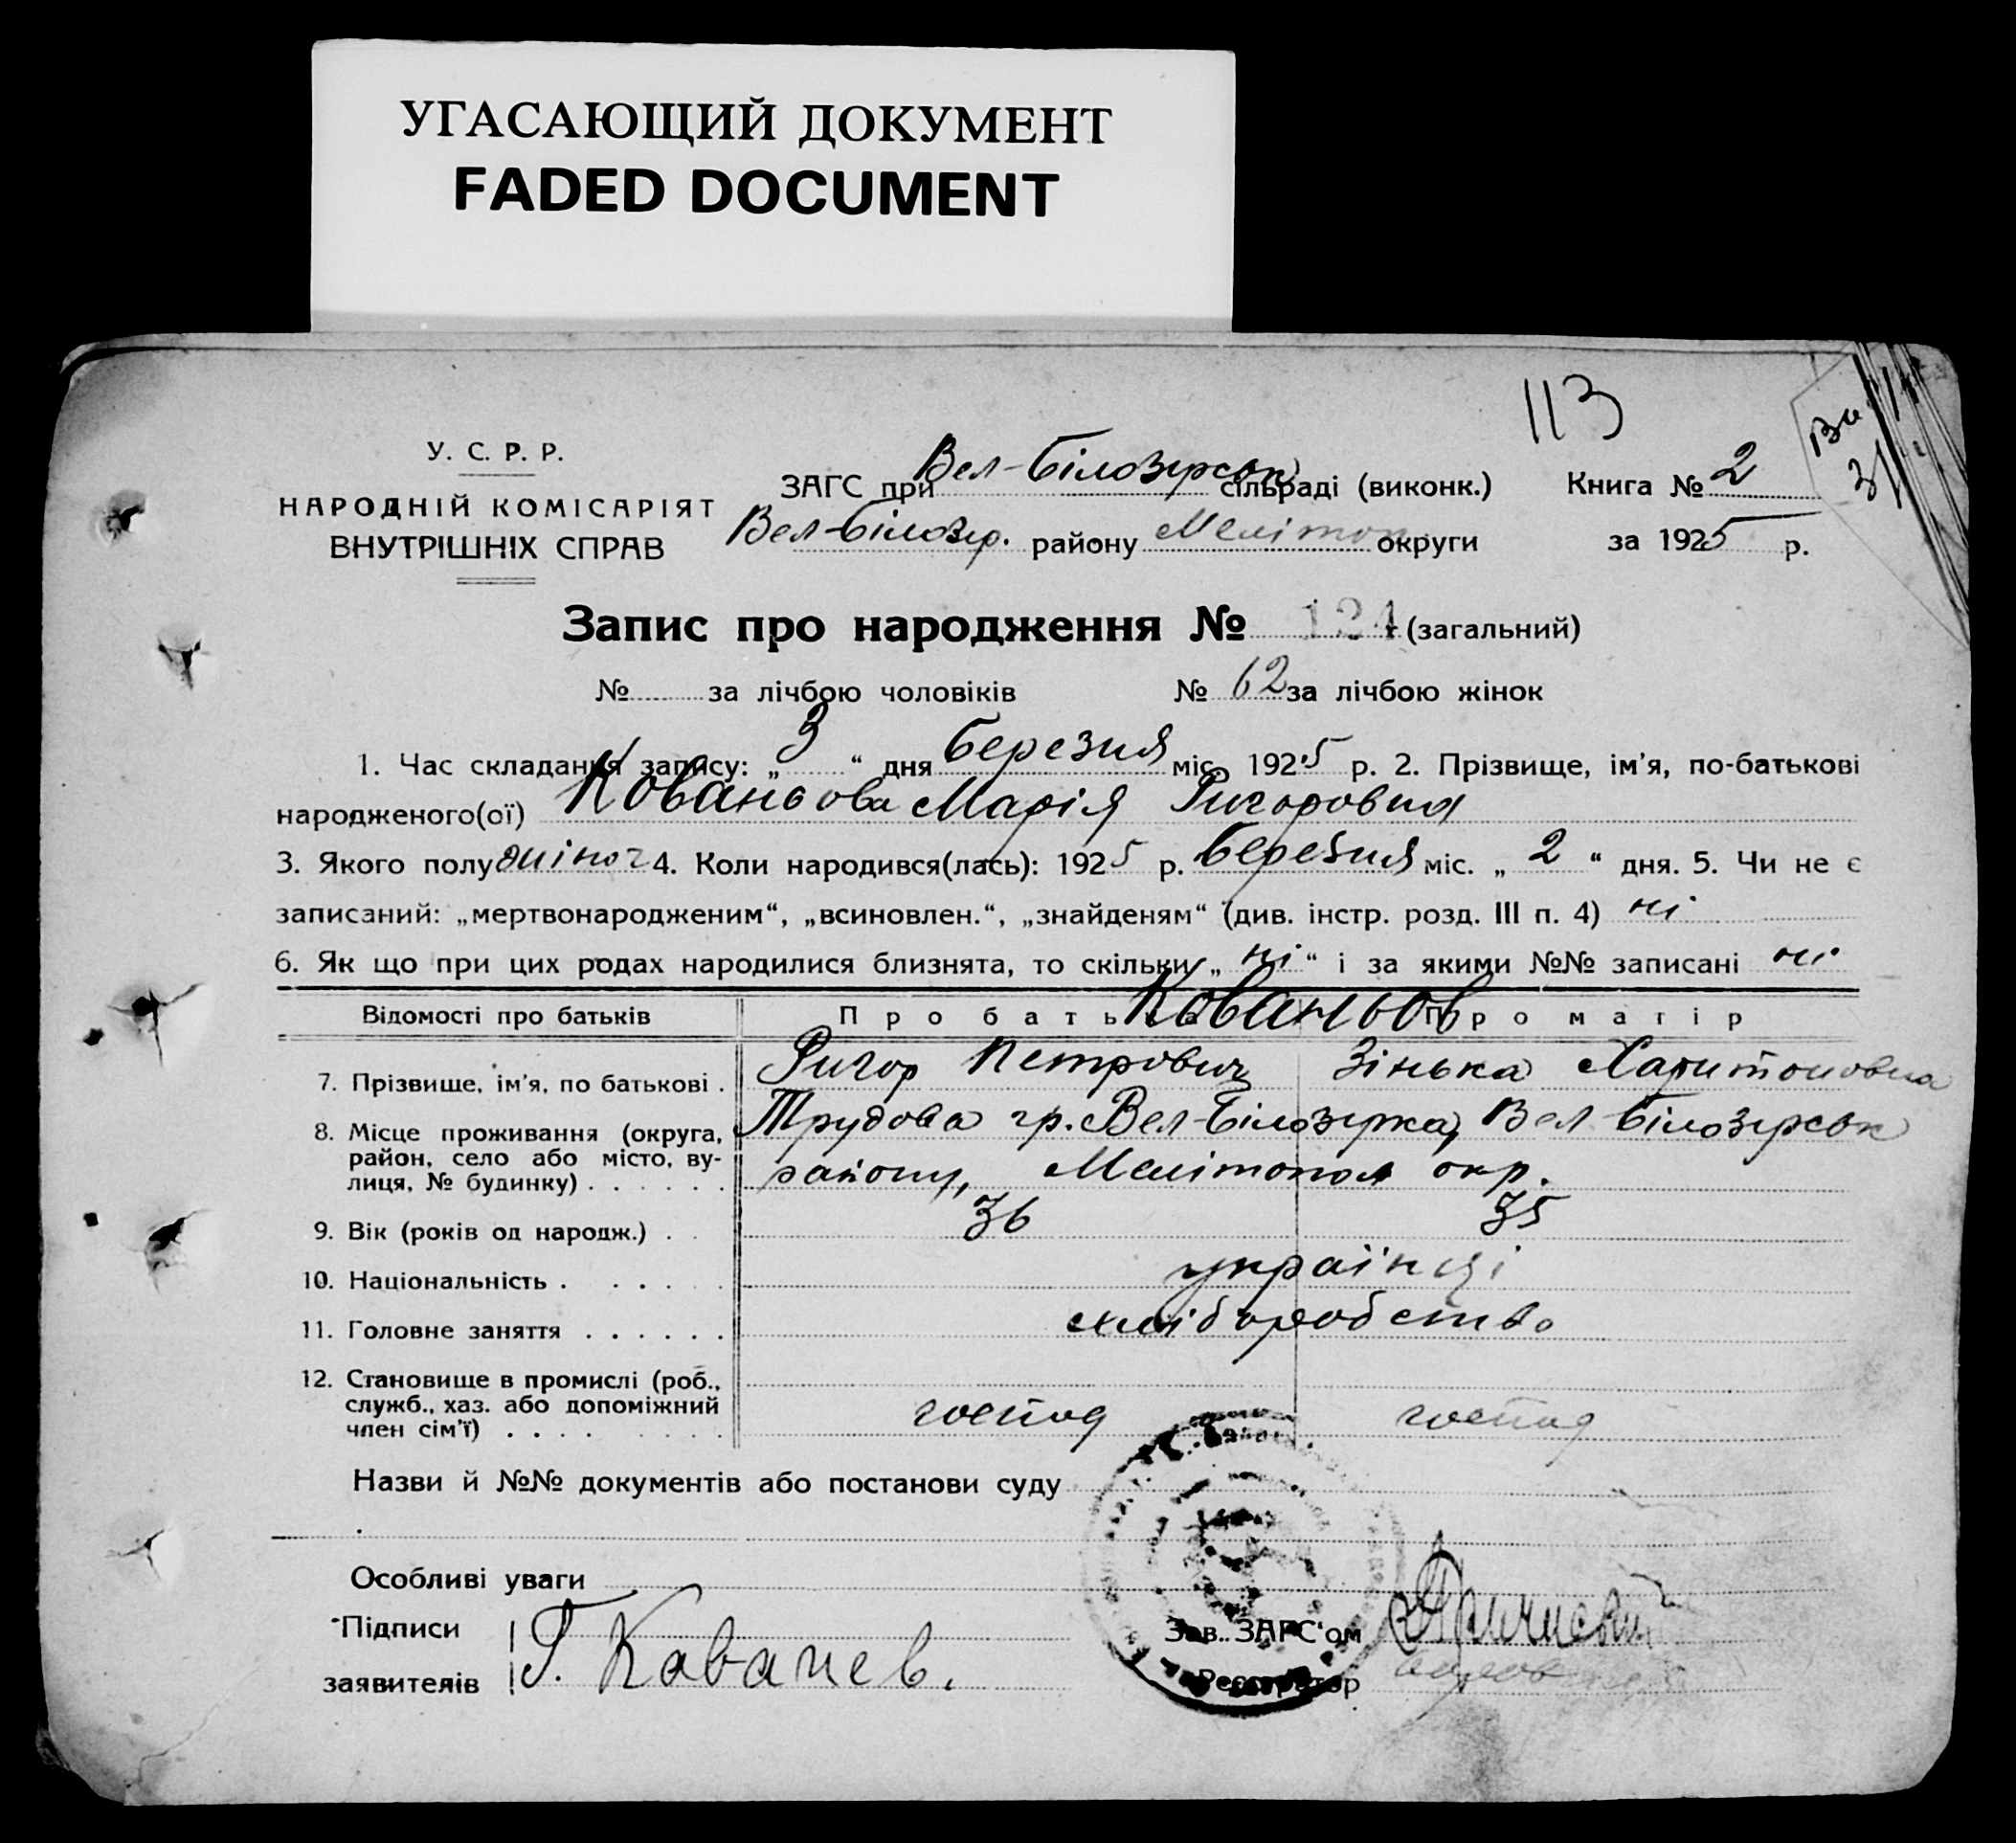 УГАСАЮЩИЙ ДОКУМЕНТ
FADED DOCUMENT
113
У. С. Р. Р.
НАРОДНІЙ КОМІСАРІЯТ
ВНУТРІШНІХ СПРАВ
ЗАГС при Вел-Білозірськ сільраді (виконк.) Книга № 2
Вел-Білозір. району Мелітоп округи за 1925 р.
Запис про народження № 124 (загальний)
№ за лічбою чоловіків № 62 за лічбою жінок
1. Час складання запису: „ 3 “ дня березня міс. 1925 р. 2. Прізвище, ім'я, по-батькові
народженого(ої) Кованьова Марія Ригоровна
3. Якого полу жіноч 4. Коли народився(лась): 1925 р. березня міс. „ 2 “ дня. 5. Чи не є
записаний: „мертвонародженим“, „всиновлен.“, „знайденям“ (див. інстр. розд. III п. 4) ні
6. Як що при цих родах народилися близнята, то скільки „ ні “ і за якими №№ записані ні
Відомості про батьків Про батька Про матір
Кованьов
7. Прізвище, ім'я, по батькові . Ригор Петрович Зінька Харитоновна
8. Місце проживання (округа, Трудова гр. Вел-Білозірка, Вел Білозірськ
район, село або місто, ву- району, Мелітопол окр.
лиця, № будинку) . . . . . .
9. Вік (років од народж.) . . 36 35
10. Національність . . . . . українці
11. Головне заняття . . . . . . хліборобство
12. Становище в промислі (роб.,
служб., хаз. або допоміжний господ господ
член сім'ї) . . . . . . . .
Назви й №№ документів або постанови суду
Особливі уваги
Підписи
заявителів Г. Кованев.
Зав. ЗАГС'ом
Реєстратор